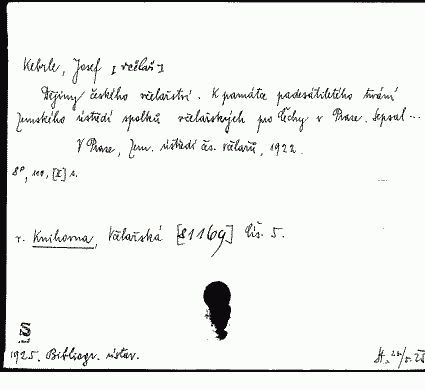 Keberle, Josef [včelař]
Dějiny českého včelařství. K památce padesátiletého trvání
Zemského ústředí spolků včelařských pro Čechy v Praze. Sepsal ...
V Praze, Zem. ústředí čs. včelařů, 1922.
8°, 119, [I] s.
r. Knihovna, Včelařská [81169] Čís. 5.
S
1925. Bibliogr. ústav.